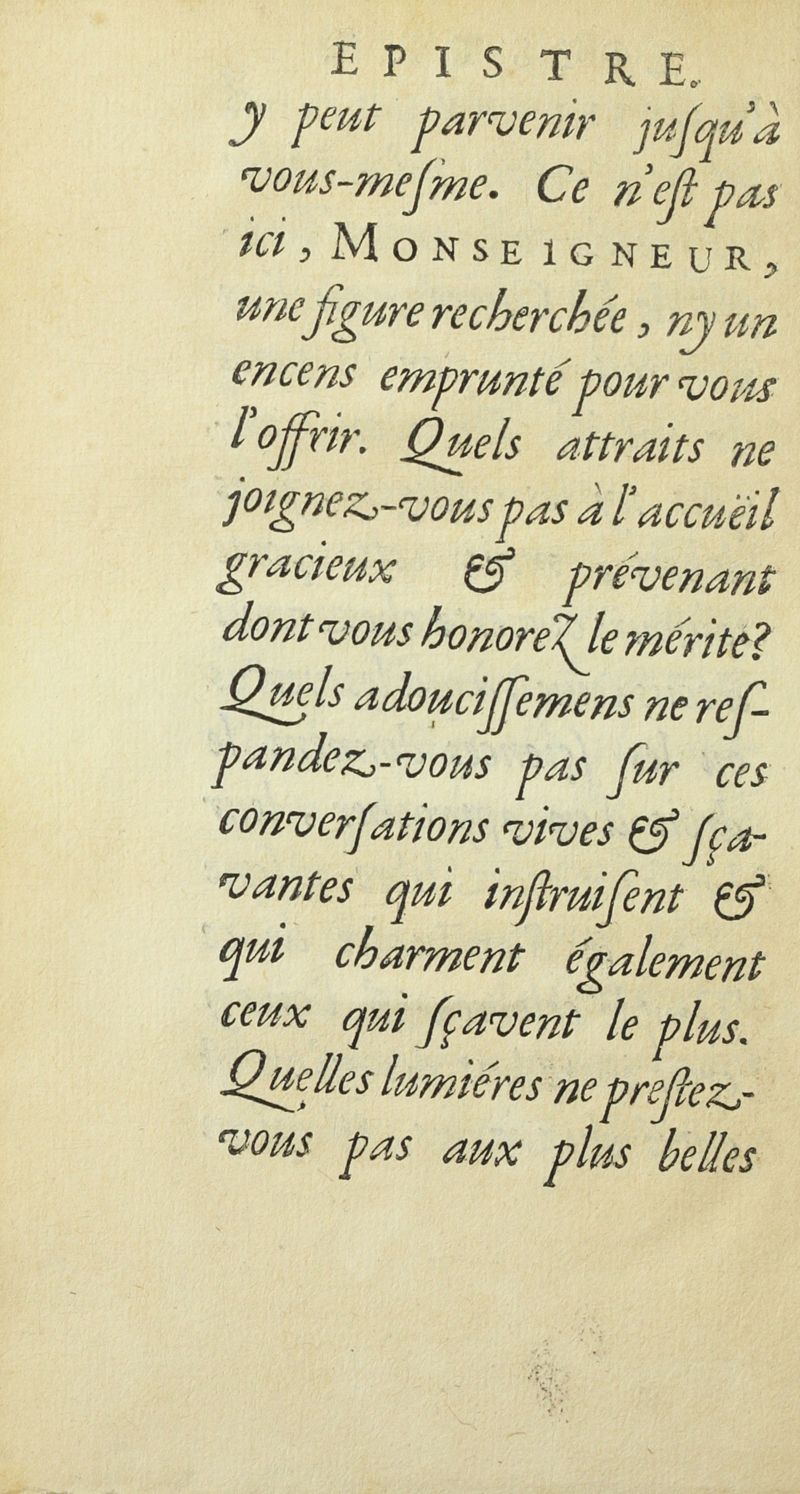 EPISTRE.
y peut parvenir juſqu'à
vous-meſme. Ce n'eſt pas
ici, MONSEIGNEUR,
une figure recherchée, ny un
encens emprunté pour vous
l'offrir. Quels attraits ne
joignez-vous pas à l'accuëil
gracieux & prévenant
dont vous honorez le mérite?
Quels adouciſſemens ne reſ-
pandez-vous pas ſur ces
converſations vives & ſça-
vantes qui inſtruiſent &
qui charment également
ceux qui ſçavent le plus.
Quelles lumiéres ne preſtez-
vous pas aux plus belles